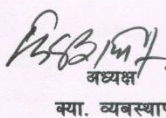 अध्यक्ष
क्या. व्यबस्थाप